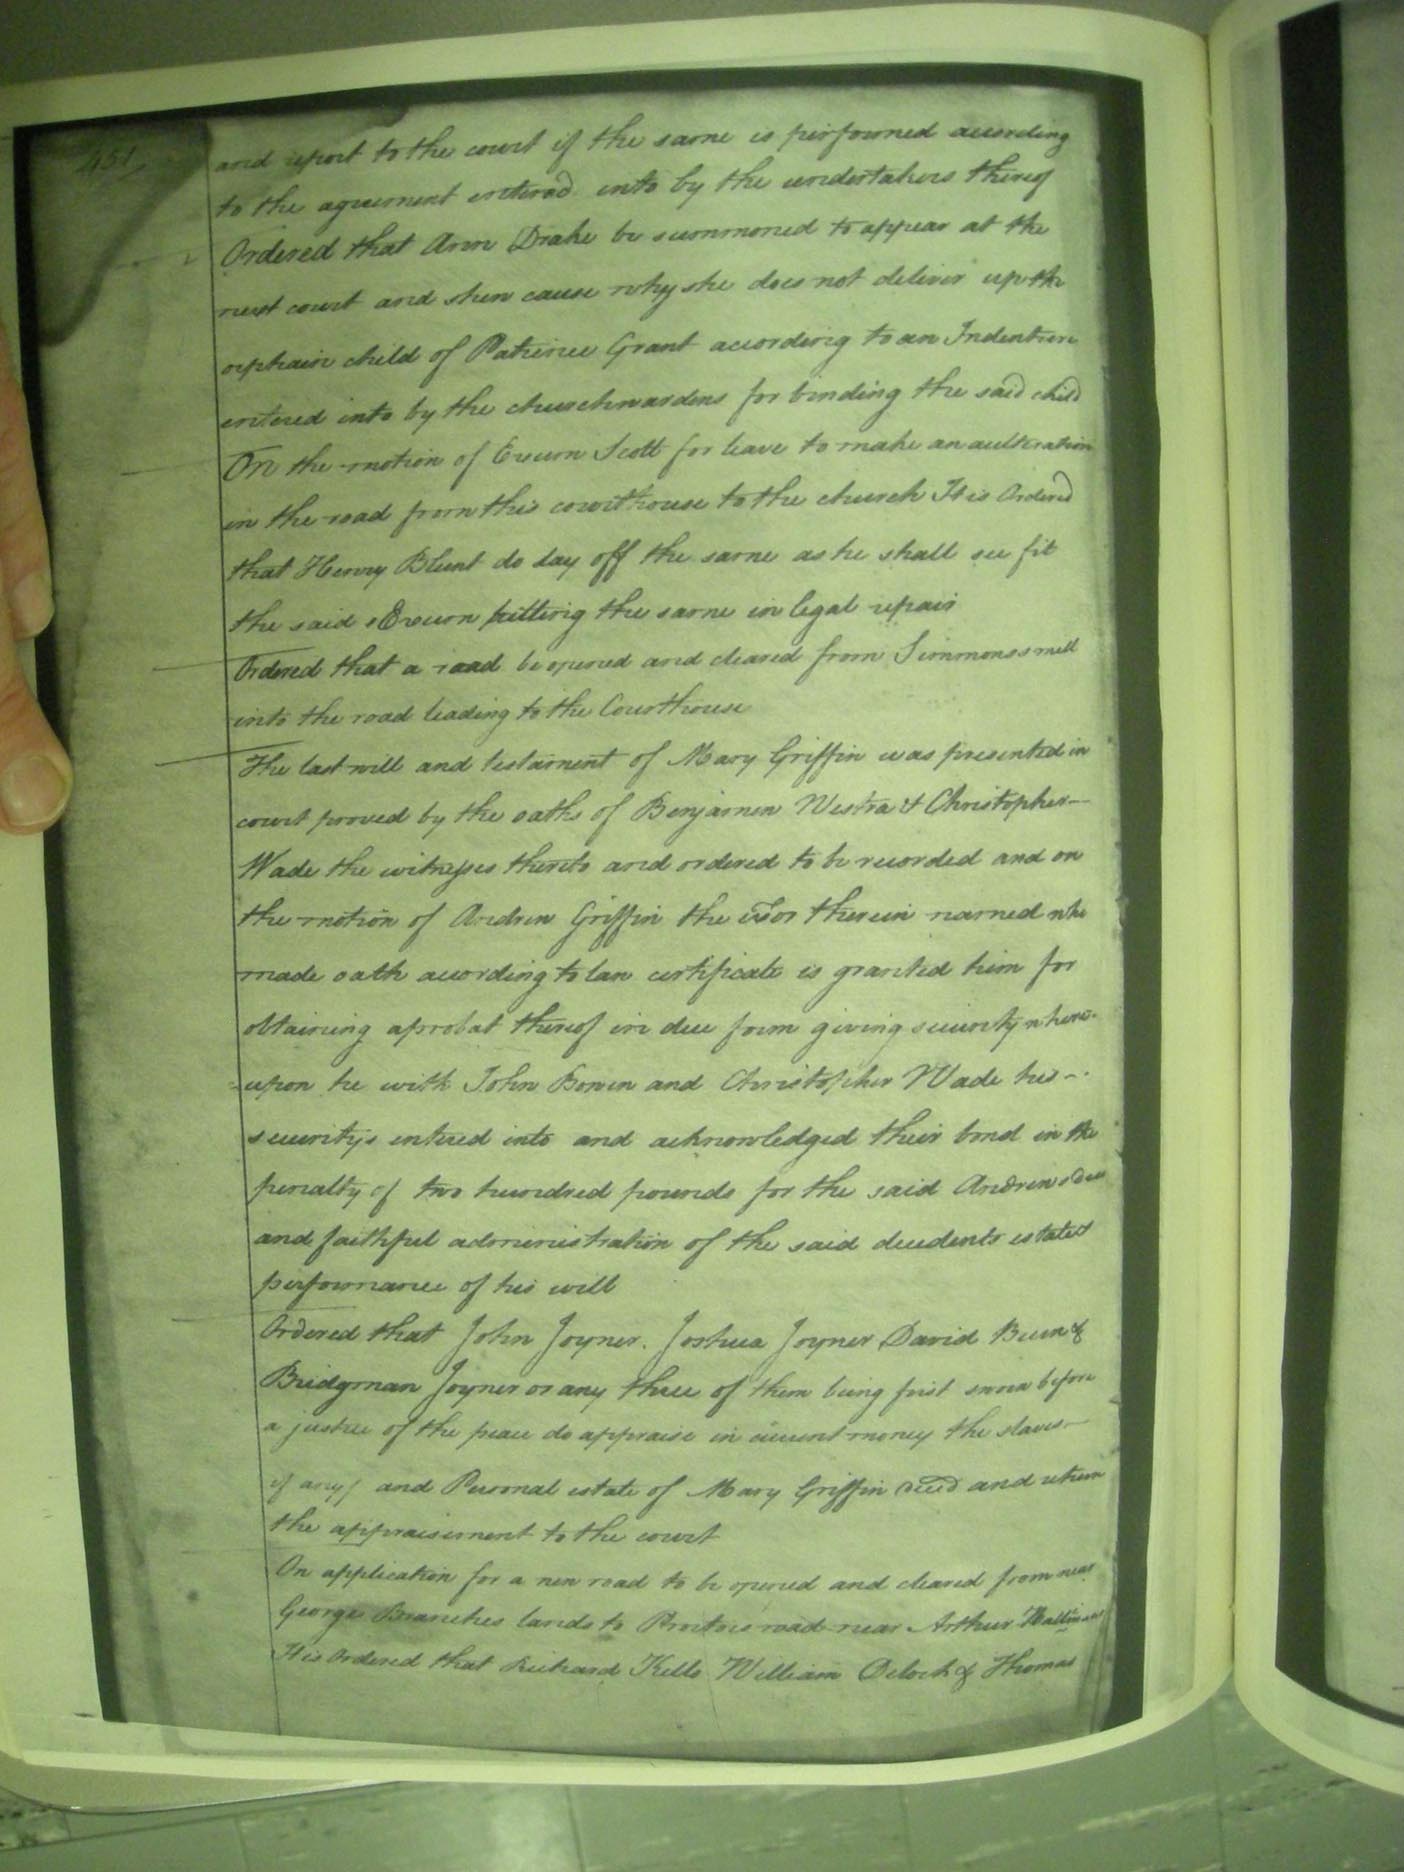 451
and report to the court if the same is performed according
to the agreement entered into by the undertakers thereof
Ordered that Ann Drake be summoned to appear at the
next court and shew cause why she does not deliver up the
orphain child of Patience Grant according to an Indenture
entered into by the churchwardens for binding the said child
On the motion of Exum Scott for leave to make an aulteration
in the road from this courthouse to the church It is Ordered
that Henry Blunt do lay off the same as he shall see fit
the said Exum putting the same in legal repair
Ordered that a road be opened and cleared from Simmonss mill
into the road leading to the Courthouse
The last will and testament of Mary Griffin was presented in
court proved by the oaths of Benjamen Westra & Christopher
Wade the witnesses thereto and ordered to be recorded and on
the motion of Andrew Griffin the exor therein named who
made oath according to law certificate is granted him for
obtaining a probat thereof in due form giving security where-
upon he with John Bowen and Christopher Wade his
securitys entered into and acknowledged their bond in the
penalty of two hundred pounds for the said Andrews due
and faithful administration of the said decedents estate &
performance of his will
Ordered that John Joyner. Joshua Joyner David Been &
Bridgman Joyner or any three of them being first sworn before
a justice of the peace do appraise in current money the slaves
if any/ and Personal estate of Mary Griffin decd and return
the appraisement to the court
On application for a new road to be opened and cleared from near
George Branches lands to Proctors road near Arthur
It is Ordered that Richard Kello William Deloch & Thomas